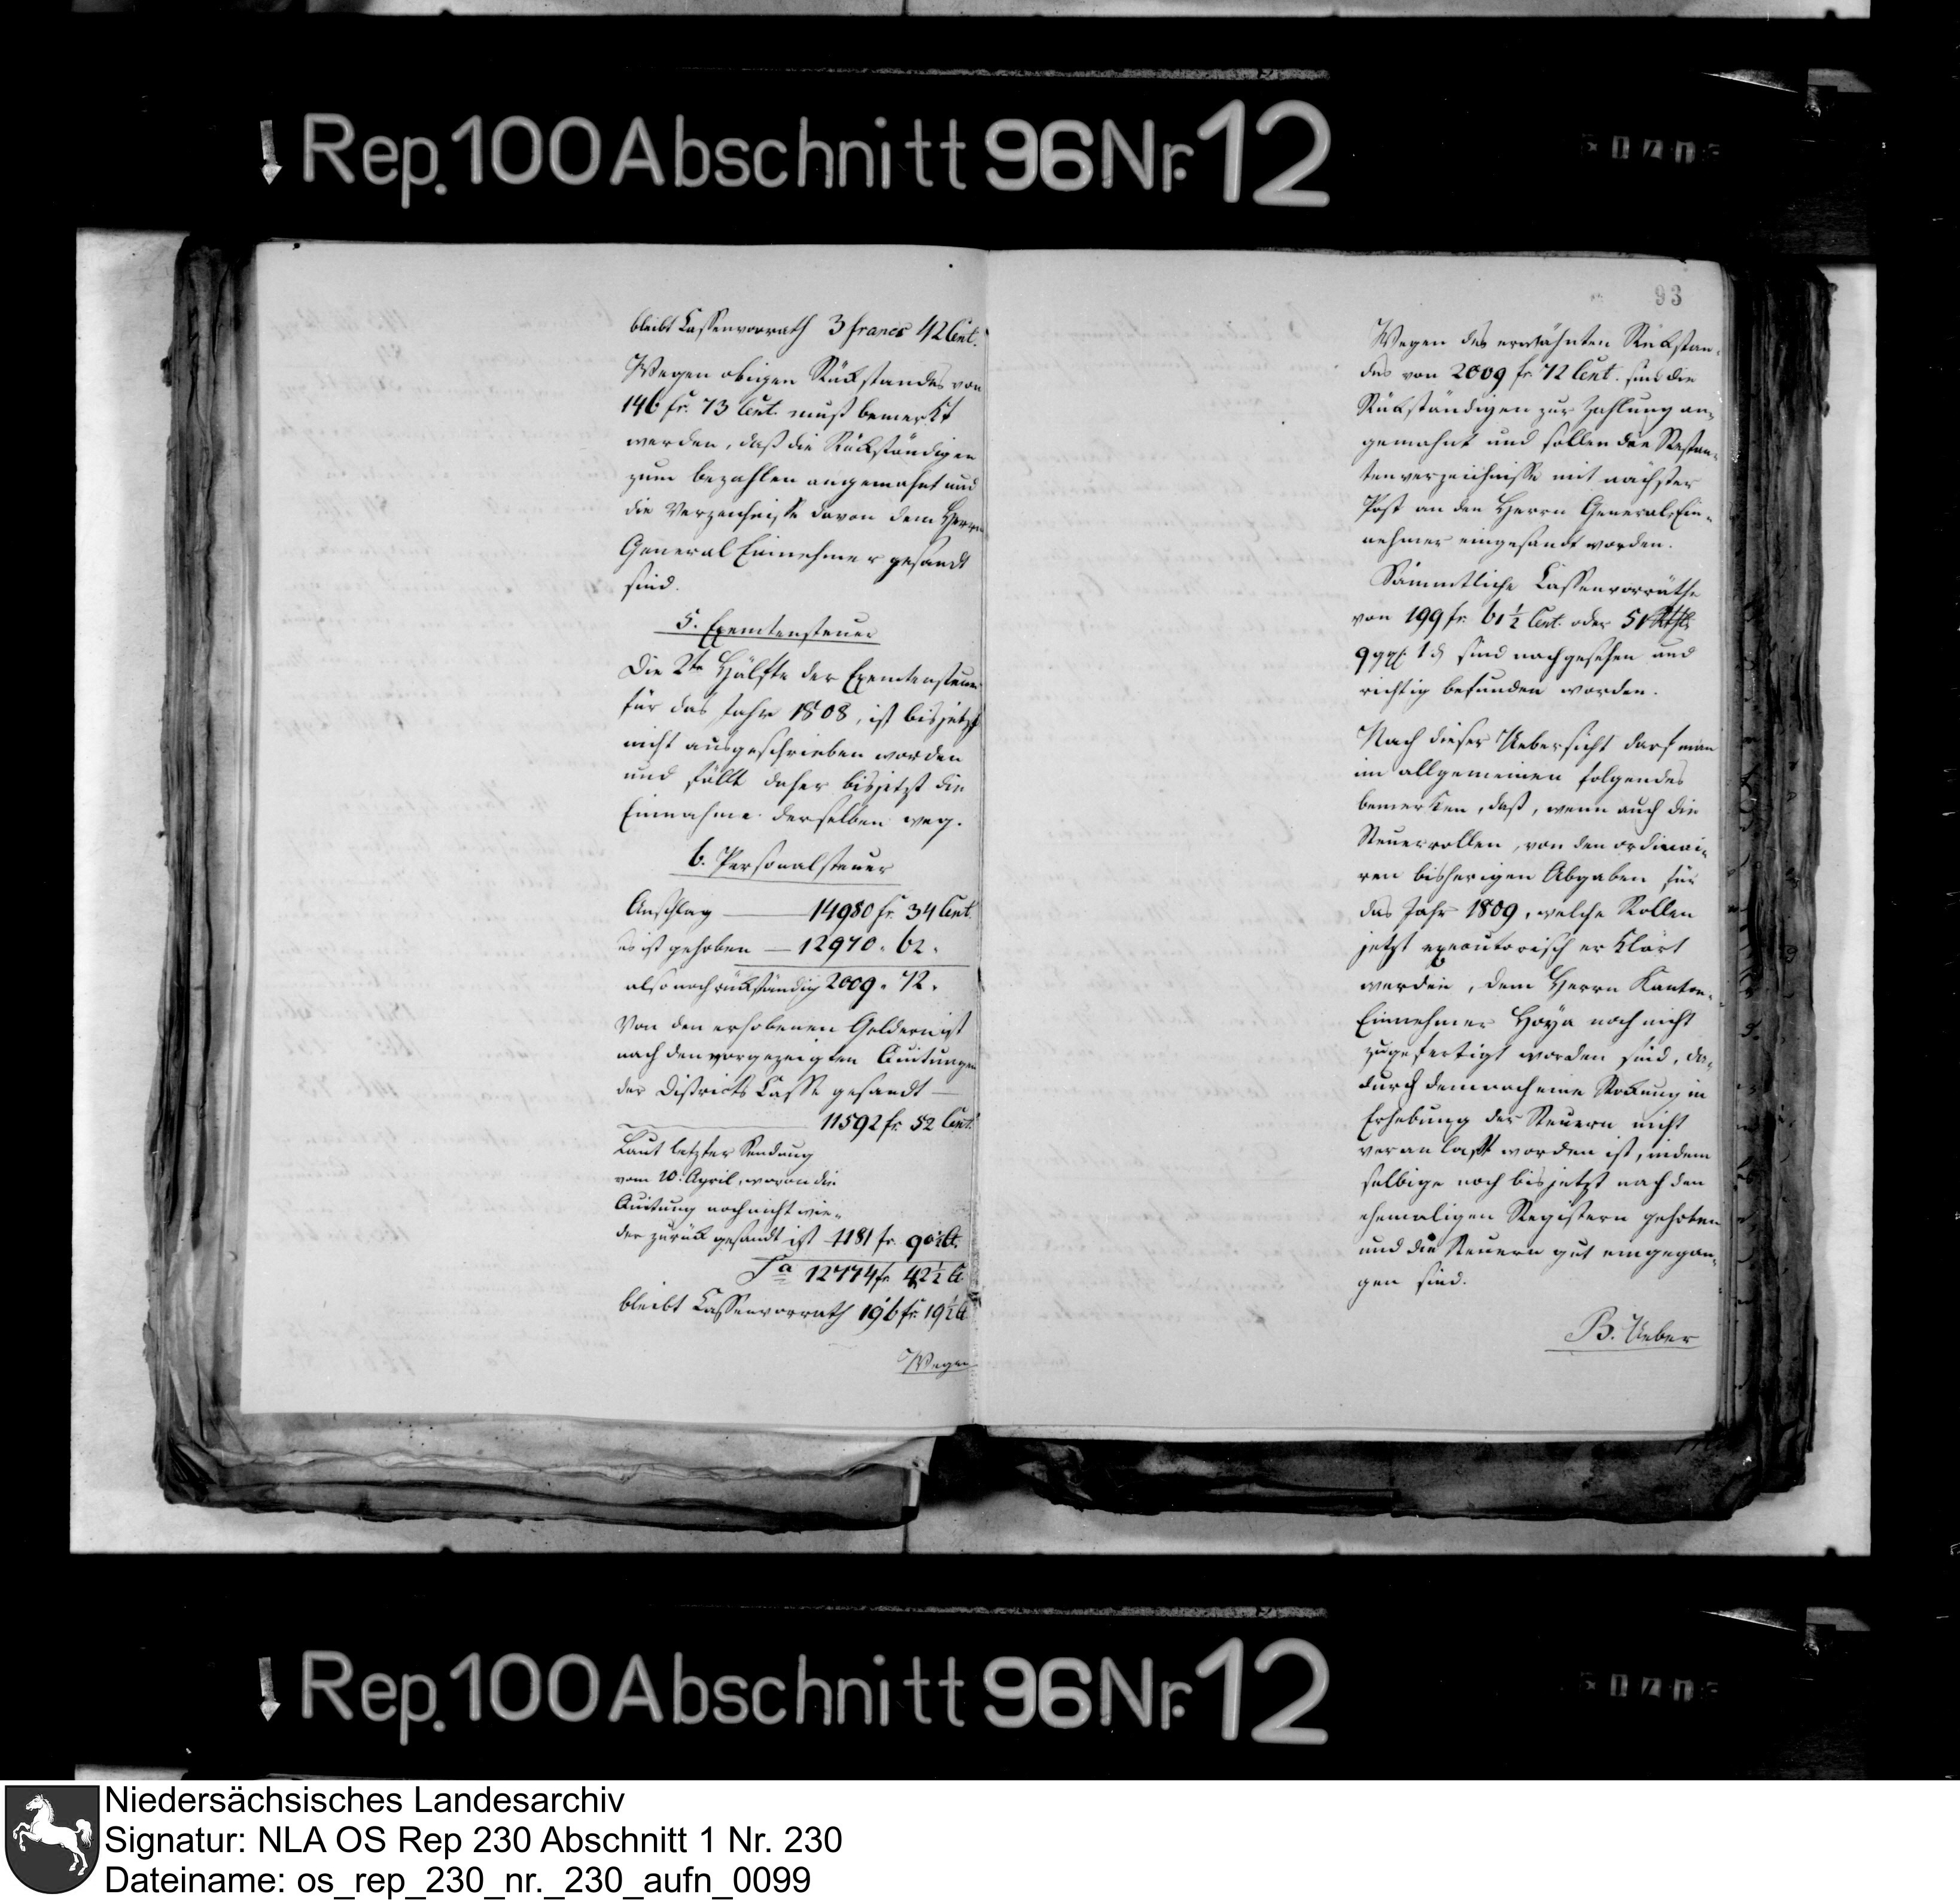 Rep. 100 Abschnitt 96 Nr. 12
bleibt Cassenvorrath 3 francs 42 Cent.
Wegen obigen Rückstandes von
146 fr. 73 Cent. muß bemerkt
werden, daß die Rückständigen
zum bezahlen angemahnt und
die Verzeichnisse davon dem Herrn
General Einnehmer gesandt
sind.
5. Exemtensteuer
Die 2te Hälfte der Exemtensteuer
für das Jahr 1808, ist bis jetzt
nicht ausgeschrieben worden
und fällt daher bis jetzt die
Einnahme derselben weg.
6. Personalsteuer
Anschlag — 14980 fr. 34 Cent.
es ist gehoben — 12970 " 62 "
also noch rückständig 2009 " 72 "
Von den erhobenen Geldern ist
nach den vorgezeigten Quitungen
der Districts Casse gesandt —
11592 fr. 52 Cent.
Laut letzter Sendung
vom 10. April, wovon die
Quitung noch nicht wie-
der zurück gesandt ist 1181 fr. 90½ Ct.
Sa 12774 fr. 42½ Ct.
bleibt Cassenvorrath 196 fr. 19½ Ct.
Wegen
93
Wegen des erwähnten Rükstan-
des von 2009 fr. 72 Cent. sind die
Rükständigen zur Zahlung an-
gemahnt und sollen die Restan-
tenverzeichnisse mit nächster
Post an den Herrn General-Ein-
nehmer eingesandt worden.
Sämmtliche Cassenvorräthe
von 199 fr. 61½ Cent. oder 51 Rthlr
9 ggl. 1 d sind nachgesehen und
richtig befunden worden.
Nach dieser Uebersicht darf man
im allgemeinen folgendes
bemerken, daß, wenn auch die
Steuerrollen, von den ordinai-
ren bisherigen Abgaben für
das Jahr 1809, welche Rollen
jetzt executorisch erklärt
werden, dem Herrn Kanton-
Einnehmer Hoya noch nicht
zugefertigt worden sind, da-
durch demnach eine Stockung in
Erhebung der Steuern nicht
veranlaßt worden ist, indem
selbige noch bis jetzt nach den
ehemaligen Registern gehoben
und die Steuern gut eingegan-
gen sind.
B. Ueber
Rep. 100 Abschnitt 96 Nr. 12
Niedersächsisches Landesarchiv
Signatur: NLA OS Rep 230 Abschnitt 1 Nr. 230
Dateiname: os_rep_230_nr._230_aufn_0099